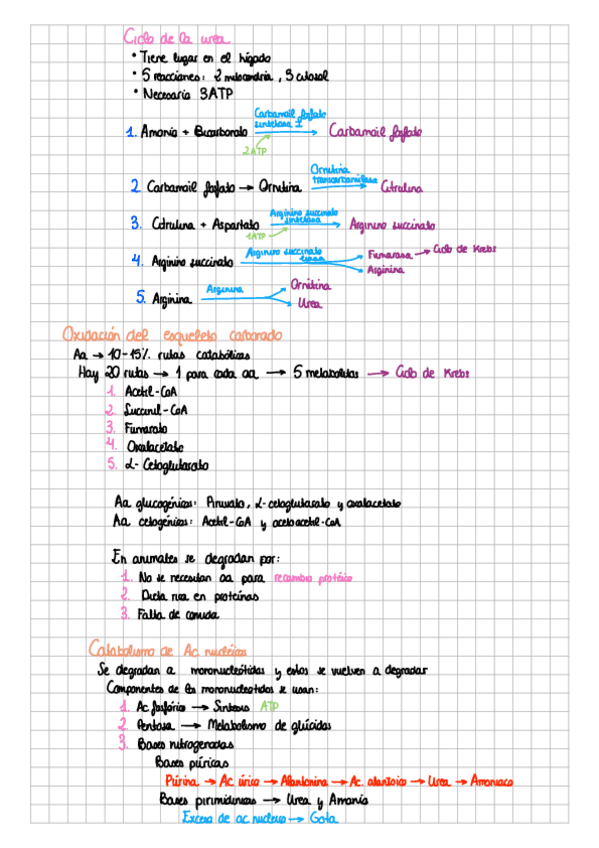 Ciclo de la urea
• Tiene lugar en el hígado
• 5 reacciones: 2 mitocondria, 3 citosol
• Necesario 3ATP
Carbamoil fosfato
sintetasa I
1. Amonio + Bicarbonato → Carbamoil fosfato
2ATP
Ornitina
transcarbamilasa
2. Carbamoil fosfato → Ornitina → Citrulina
Arginino succinato
sintetasa
3. Citrulina + Aspartato → Arginino succinato
1ATP
Arginino succinato
liasa
4. Arginino succinato → Fumarasa → Ciclo de Krebs
Arginina
Arginasa
5. Arginina → Ornitina
Urea
Oxidación del esqueleto carbonado
Aa → 10-15% rutas catabólicas
Hay 20 rutas → 1 para cada aa → 5 metabolitos → Ciclo de Krebs
1. Acetil-CoA
2. Succinil-CoA
3. Fumarato
4. Oxalacetato
5. α-Cetoglutarato
Aa glucogénicos: Piruvato, α-cetoglutarato y oxalacetato
Aa cetogénicos: Acetil-CoA y acetoacetil-CoA
En animales se degradan por:
1. No se necesitan aa para recambio proteico
2. Dieta rica en proteínas
3. Falta de comida
Catabolismo de Ac. nucleicos
Se degradan a mononucleótidos y estos se vuelven a degradar
Componentes de los mononucleotidos se usan:
1. Ac fosfórico → Sintesis ATP
2. Pentosa → Metabolismo de glúcidos
3. Bases nitrogenadas
Bases púricas
Púrina → Ac. úrico → Alantonina → Ac. alantoico → Urea → Amoniaco
Bases pirimidinicas → Urea y Amonio
Exceso de ac nucleico → Gota